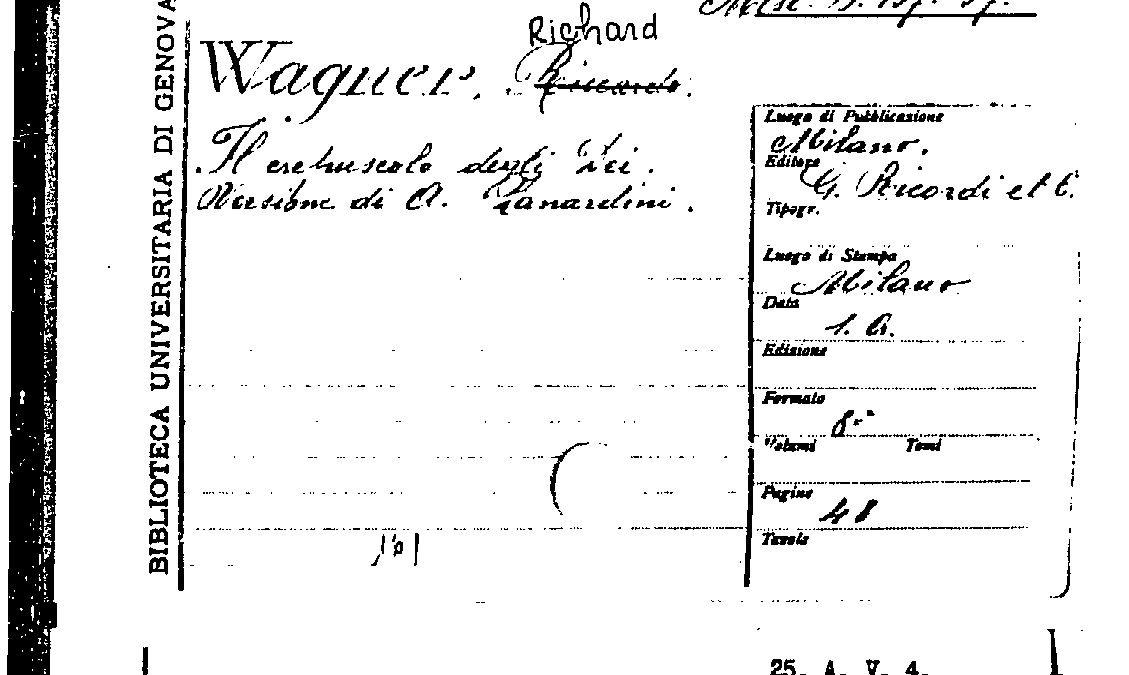 BIBLIOTECA UNIVERSITARIA DI GENOVA
Richard
Wagner, Riccardo.
Il crepuscolo degli Dei.
Versione di A. Zanardini.
Luogo di Pubblicazione
Milano.
Editore
G. Ricordi et C.
Tipogr.
Luogo di Stampa
Milano
Data
s. a.
Edizione
Formato
8°
Volumi Tomi
Pagine
48
Tavole
25. A. V. 4.